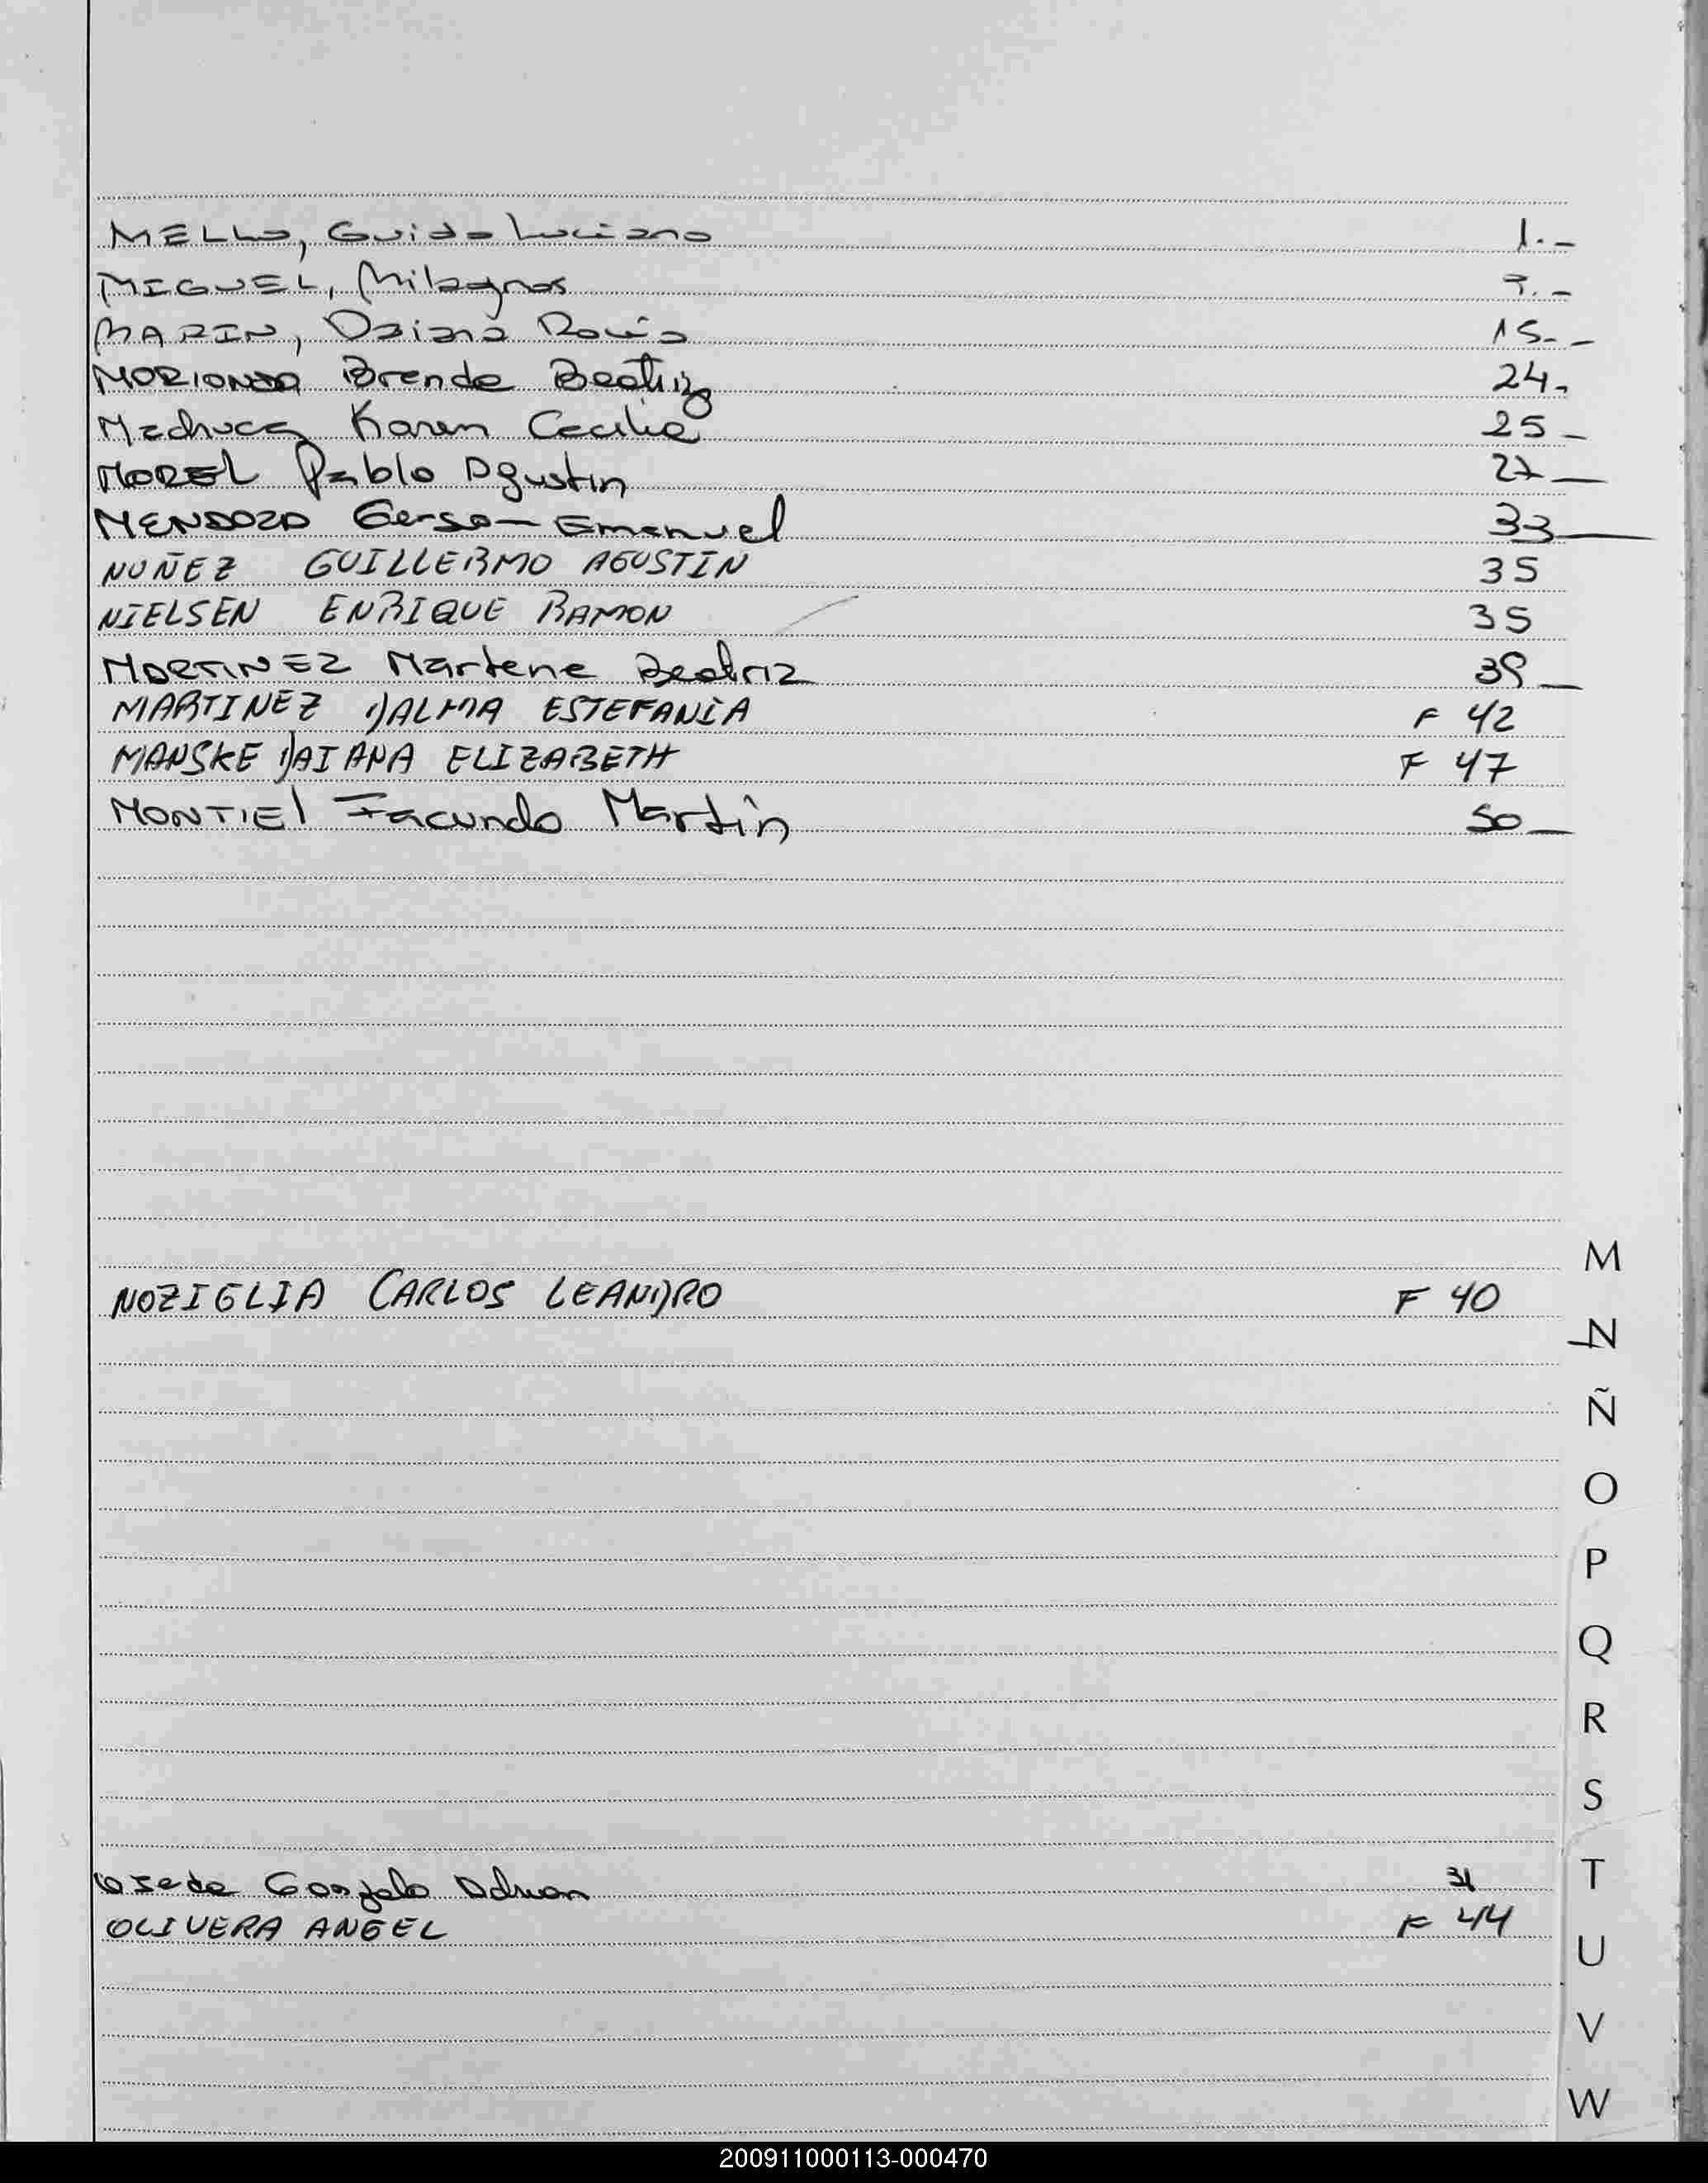 MELLO, Guido Luciano 1.-
MIGUEL, Milagros 7.-
MARIN, Daiana Rocío 15.-
MORIONDO Brenda Beatriz 24.
Machuca Karen Cecilia 25-
MOREL Pablo Agustin 27-
MENDOZA Gerson Emanuel 33
NUÑEZ GUILLERMO AGUSTIN 35
NIELSEN ENRIQUE RAMON 35
MARTINEZ Marlene Beatriz
MARTINEZ DALMA ESTEFANÍA F 42
MANSKE DAIANA ELIZABETH F 47
MONTIEL Facundo Martín 50
M
NOZIGLIA CARLOS LEANDRO F 40
N
Ñ
O
P
Q
R
S
T
Gonzalo Adrian
OLIVERA ANGEL F 44
U
V
W
200911000113-000470